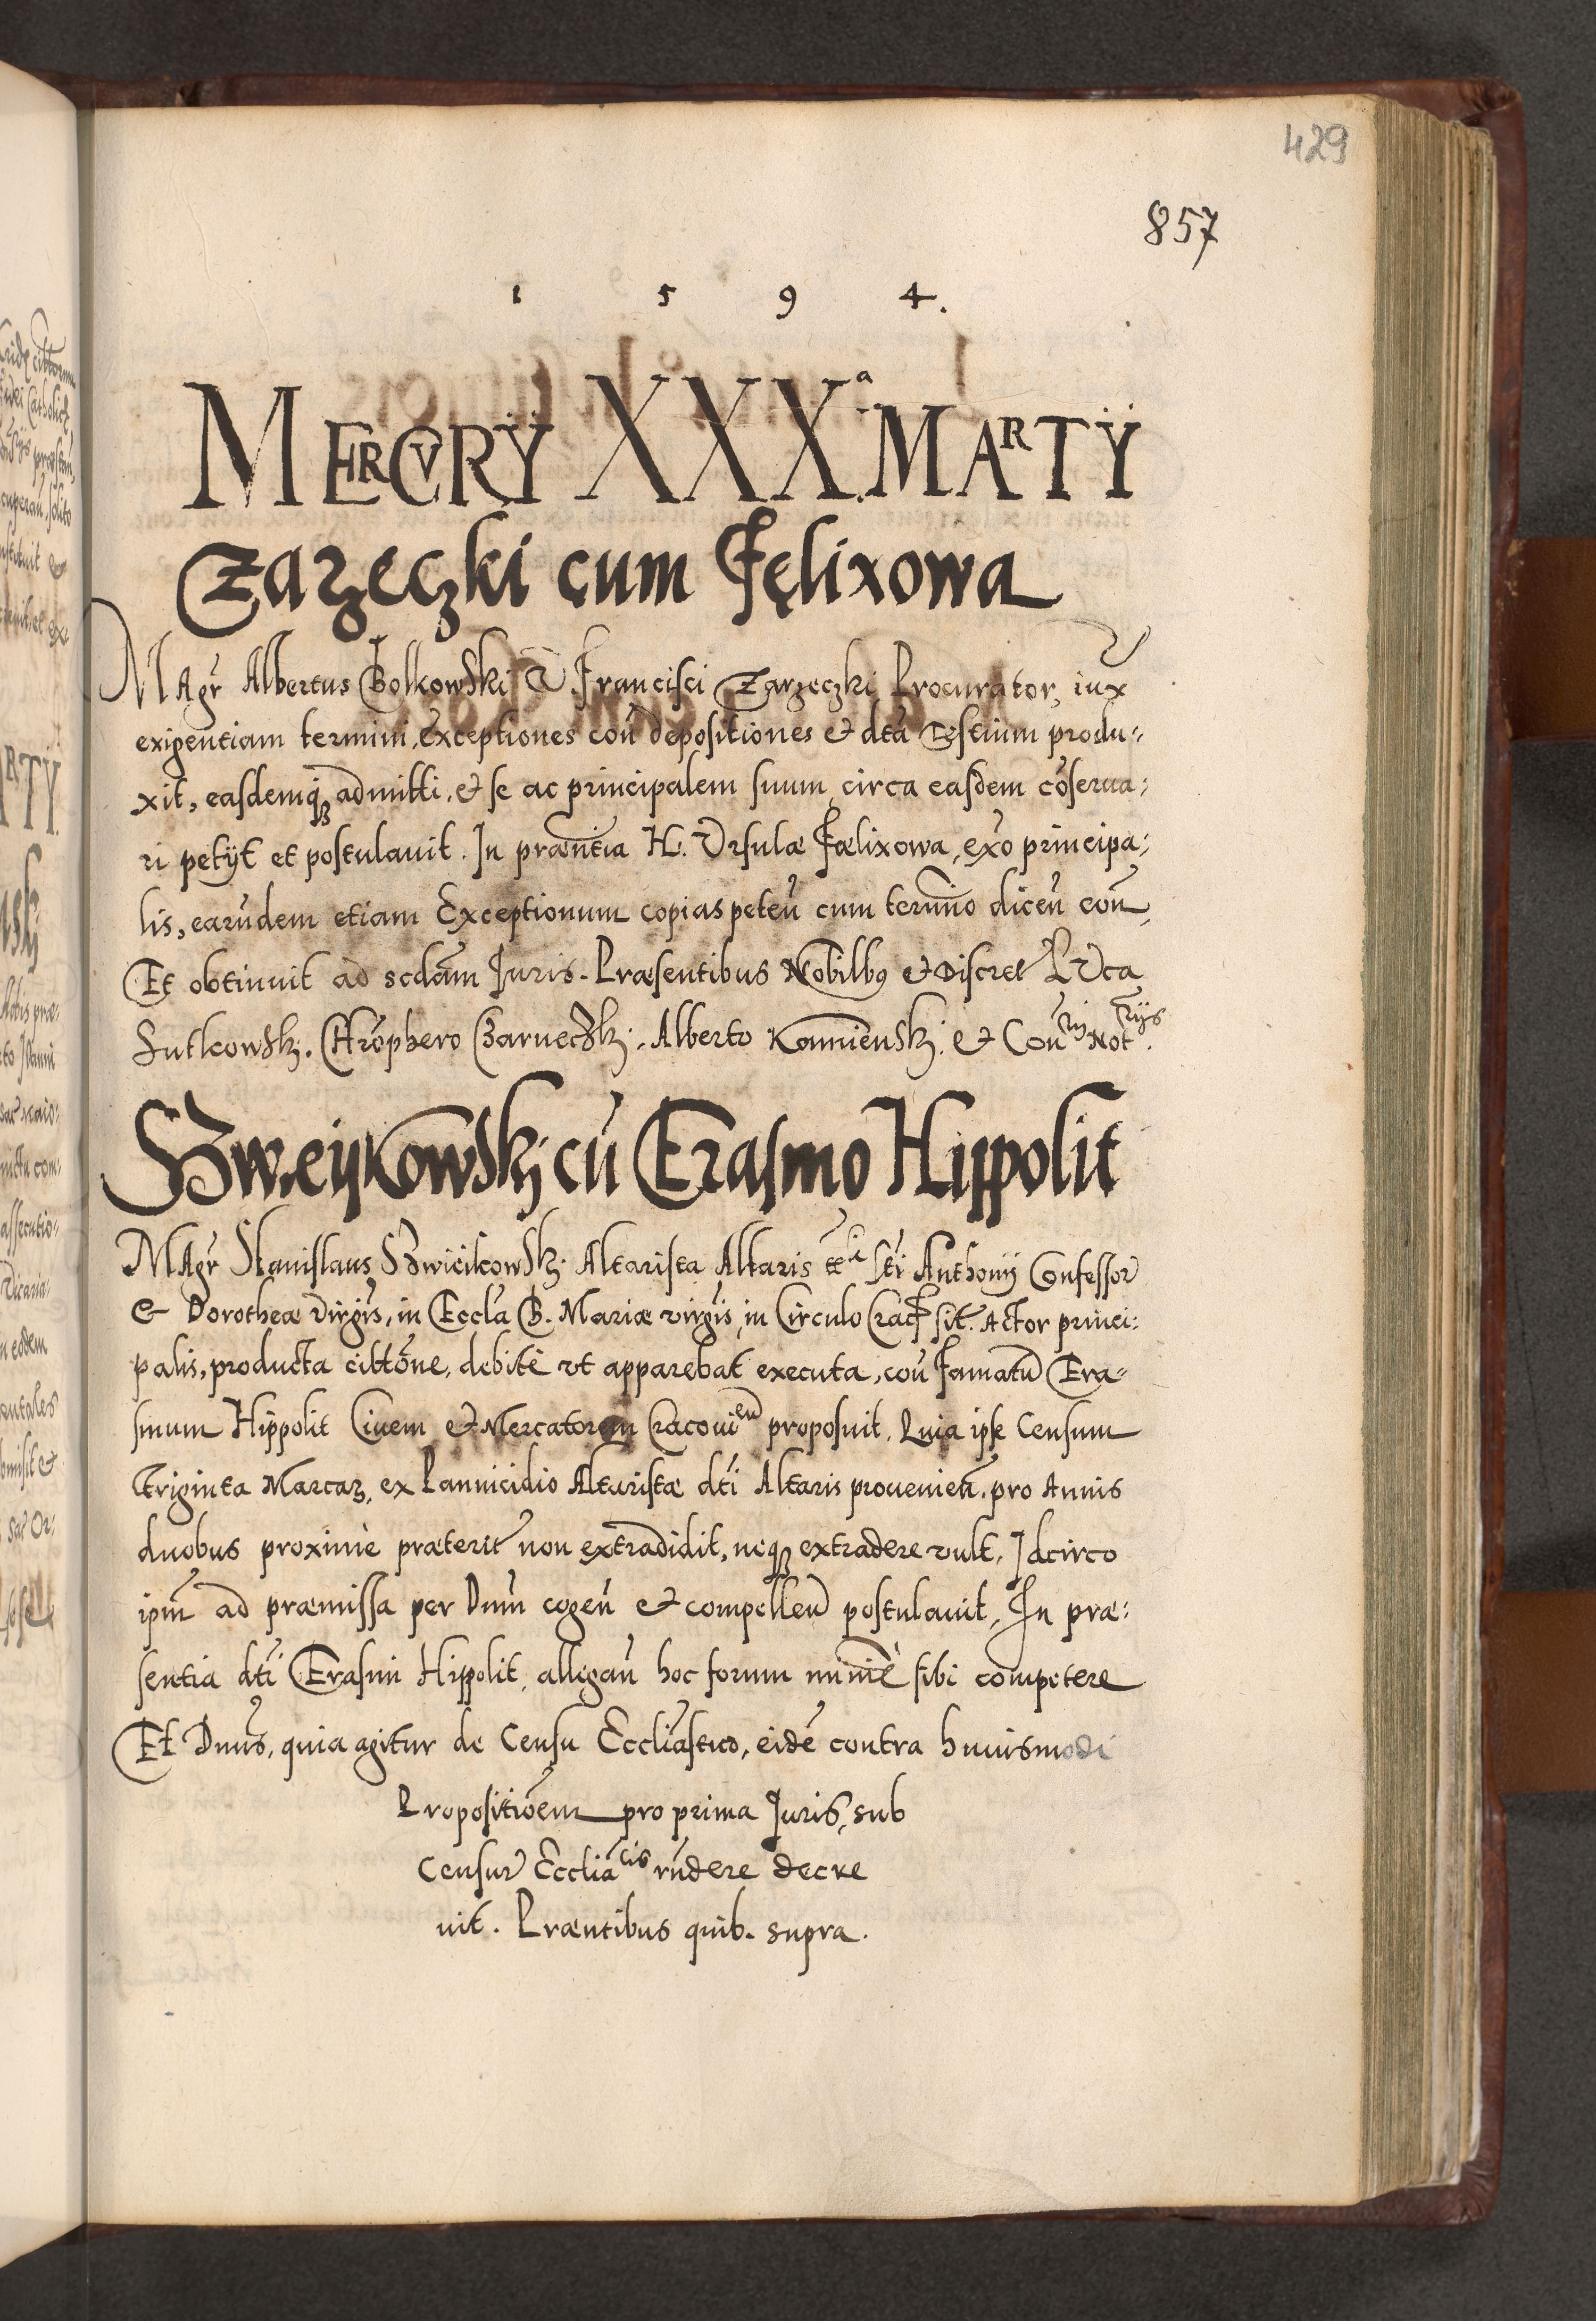 429
857
1594.
MERCVRŸ XXXa. MARTŸ
Zarzeczki cum Fęlixowa
MAgr̃ Albertus Bolkowski D. Francisci Zarzeczki Procurator, iux̃
exigentiam termini, exceptiones con̄ depositiones et dc̃ta testium produ-
xit, easdemq3 admitti, et se ac principalem suum circa easdem cōserua-
ri petÿt et postulavit. In præn̄tia H. Vrsulæ Fælixowa, ex̄o principa-
lis, earūdem etiam Exceptionum copias peteñ cum terīno diceñ con̄,
Et obtinuit ad scdãm Iuris. Præsentibus Nobilbꝯ et Discret̃ Luca
Sutkowskj. Chrõphero Czarneczkj. Alberto Kamienskj. et Con̄ Not rijs.
SZweijkowskj cū Erasmo Hippolit
MAgr̃ Stanislaus SZwieikowskj. Altarista Altaris tt̃li Sc̃ti Anthonij Confessor̃
et Dorotheæ virgĩs, in Eccl̃a B. Mariæ virgĩs, in Circulo Crac̃ sit̃. Actor princi-
palis, producta citt̃one, debitè vt apparebat executa, con̄ Famatū Era-
smum Hippolit Ciuem et Mercatorem Cracovien̄ proposuit. Quia ipse Censum
Triginta Marcaꝝ, ex Pannicidio Altaristæ dc̃ti Altaris provenien̄. pro Annis
duobus proximè præterit̃ non extradidit, neq3 extradere vult, Idcirco
ipm̄ ad præmissa per Dnm̄ cogen̄ et compellen̄ postulauit, In præ-
sentia dc̃ti Erasmi Hippolit, allegan̄ hoc forum minimè sibi competere
Et Dnus̃, quia agitur de Censu Eccliãstico, eidē contra huiusmodi
Propositiõem pro prima Iuris, sub
Censur̃ Eccliã cis rñdere decre
uit. Præntibus quib. supra.